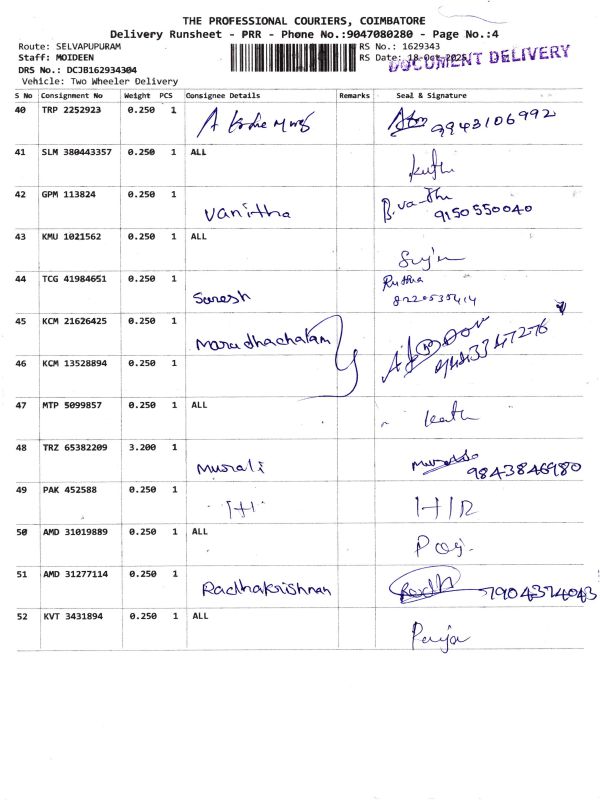 THE PROFESSIONAL COURIERS, COIMBATORE
Delivery Runsheet - PRR - Phone No.:9047080280 - Page No.:4
Route: SELVAPUPURAM RS No.: 1629343
Staff: MOIDEEN RS Date: 18-Oct-2025
DOCUMENT DELIVERY
DRS No.: DCJB162934304
Vehicle: Two Wheeler Delivery
S No Consignment No Weight PCS Consignee Details Remarks Seal & Signature
40 TRP 2252923 0.250 1
9943106992
41 SLM 380443357 0.250 1 ALL
42 GPM 113824 0.250 1
Vanitha
9150550040
43 KMU 1021562 0.250 1 ALL
44 TCG 41984651 0.250 1
Suresh
8220535414
45 KCM 21626425 0.250 1
Marudhachalam
46 KCM 13528894 0.250 1
47 MTP 5099857 0.250 1 ALL
48 TRZ 65382209 3.200 1
Murali 9843846980
49 PAK 452588 0.250 1
50 AMD 31019889 0.250 1 ALL
51 AMD 31277114 0.250 1
Radhakrishnan 7904374043
52 KVT 3431894 0.250 1 ALL